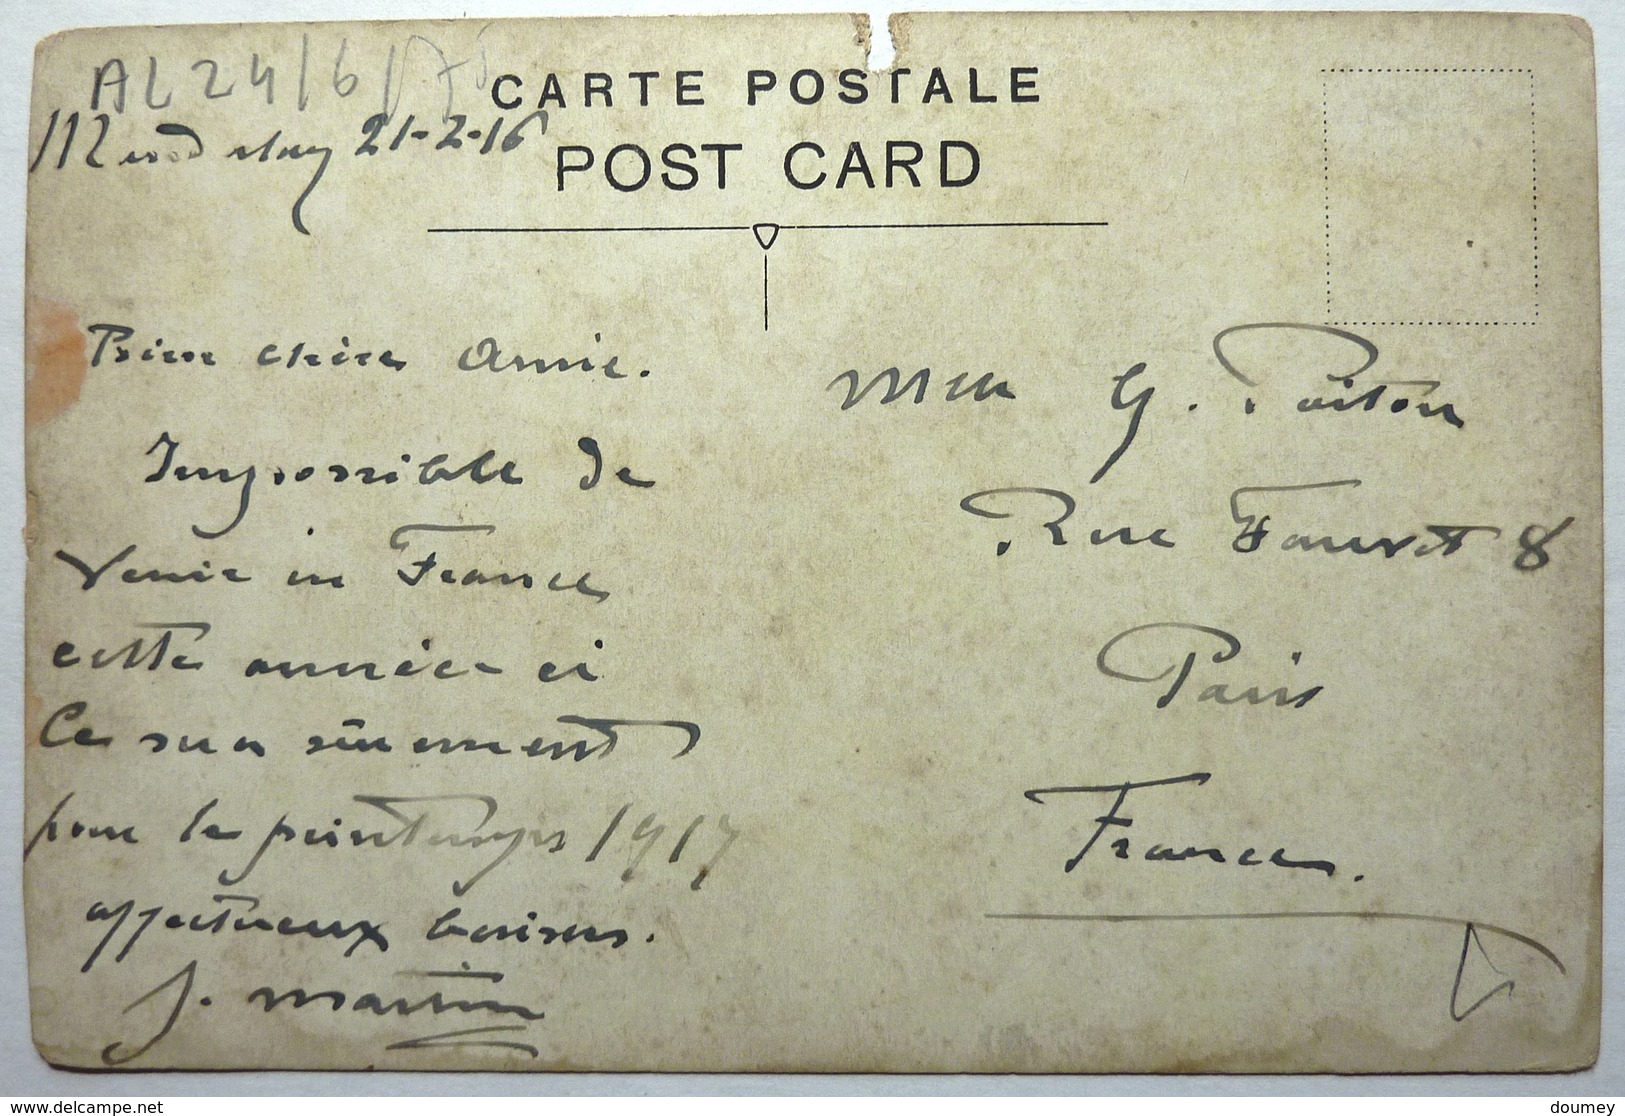 AL 24/6/75
CARTE POSTALE
21-2-16
POST CARD
Bien chère Amie.
Impossible de
Venir en France
cette année ci
Ce sera sûrement
pour le printemps 1917
affectueux baisers.
J. Martin
Mme G. Poiton
Rue Fauvet 8
Paris
France.
delcampe.net
doumey